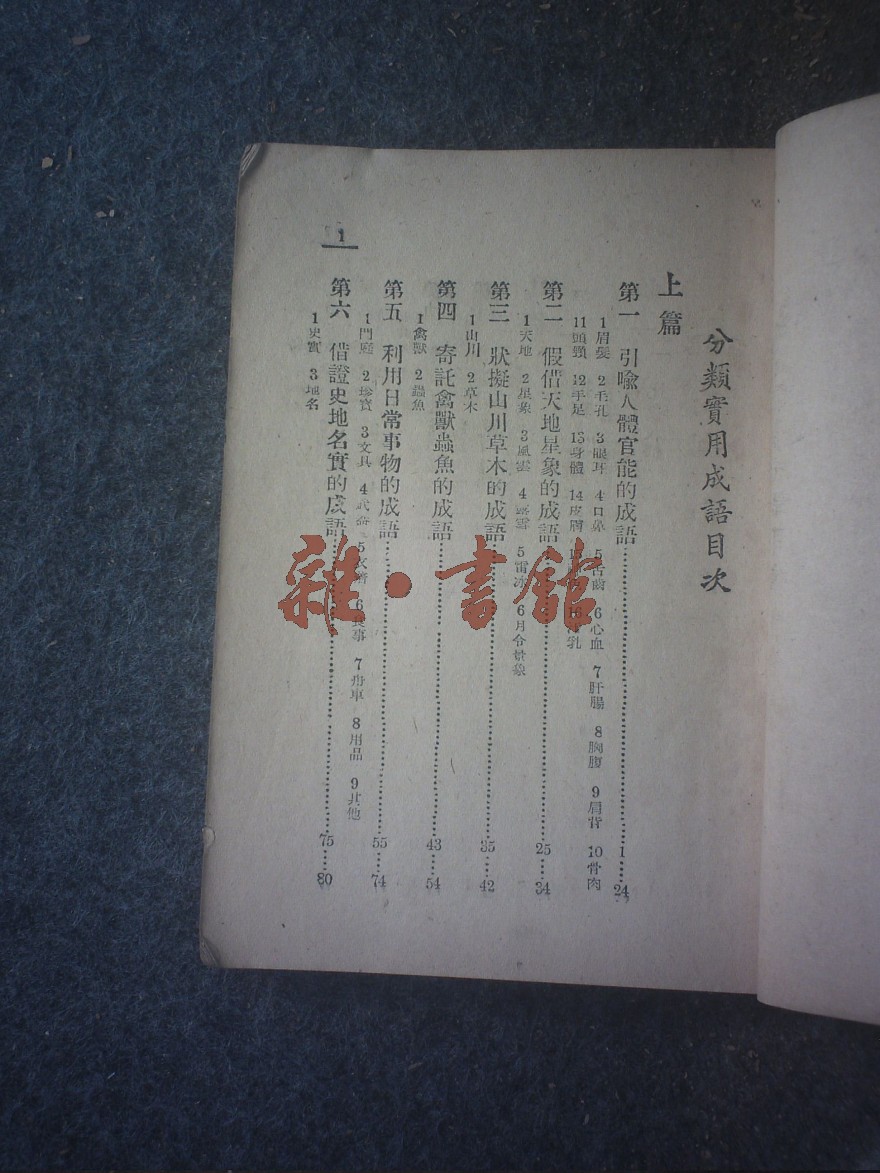 分類實用成語目次
上篇
第一 引喩人體官能的成語 1 24
1眉髮 2毛孔 3眼耳 4口鼻 5舌齒 6心血 7肝腸 8胸腹 9肩背 10骨肉
11頭頸 12手足 13身體 14皮膚 16 乳
第二 假借天地星象的成語 25 34
1天地 2星象 3風雲 4霧雪 5雷冰 6月令景象
第三 狀擬山川草木的成語 35 42
1山川 2草木
第四 寄託禽獸蟲魚的成語 43 54
1禽獸 2蟲魚
第五 利用日常事物的成語 55 74
1門庭 2珍寶 3文具 4武器 5 6食事 7舟車 8用品 9其他
第六 借證史地名實的成語 75 80
1史實 3地名
1
雜·書館